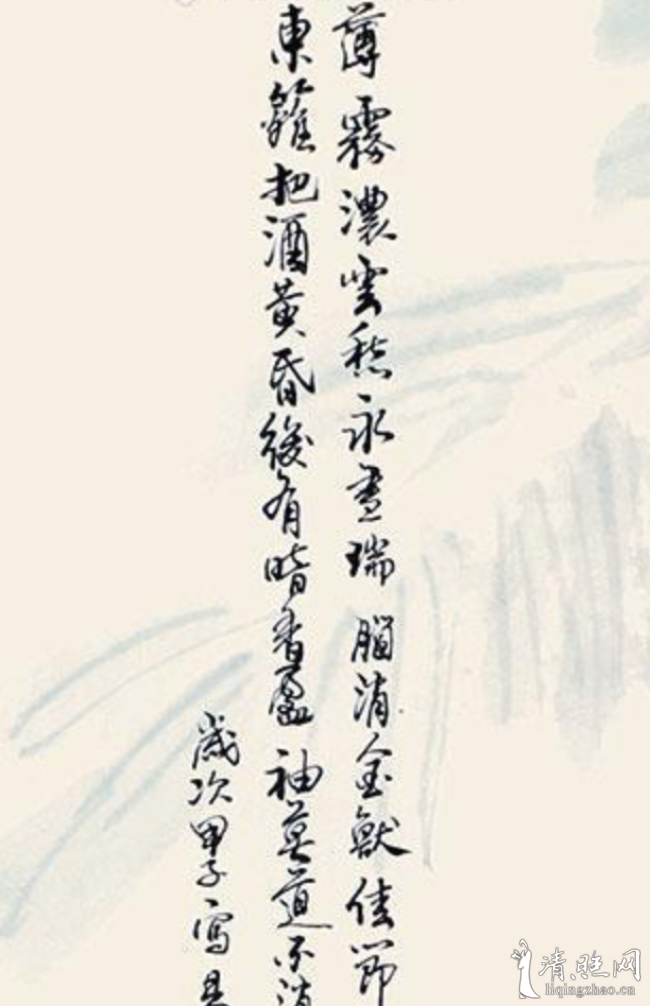 薄霧濃雲愁永晝瑞腦消金獸佳節
東籬把酒黃昏後有暗香盈袖莫道不消
歲次甲子寫
清照网
liqingzhao.cn